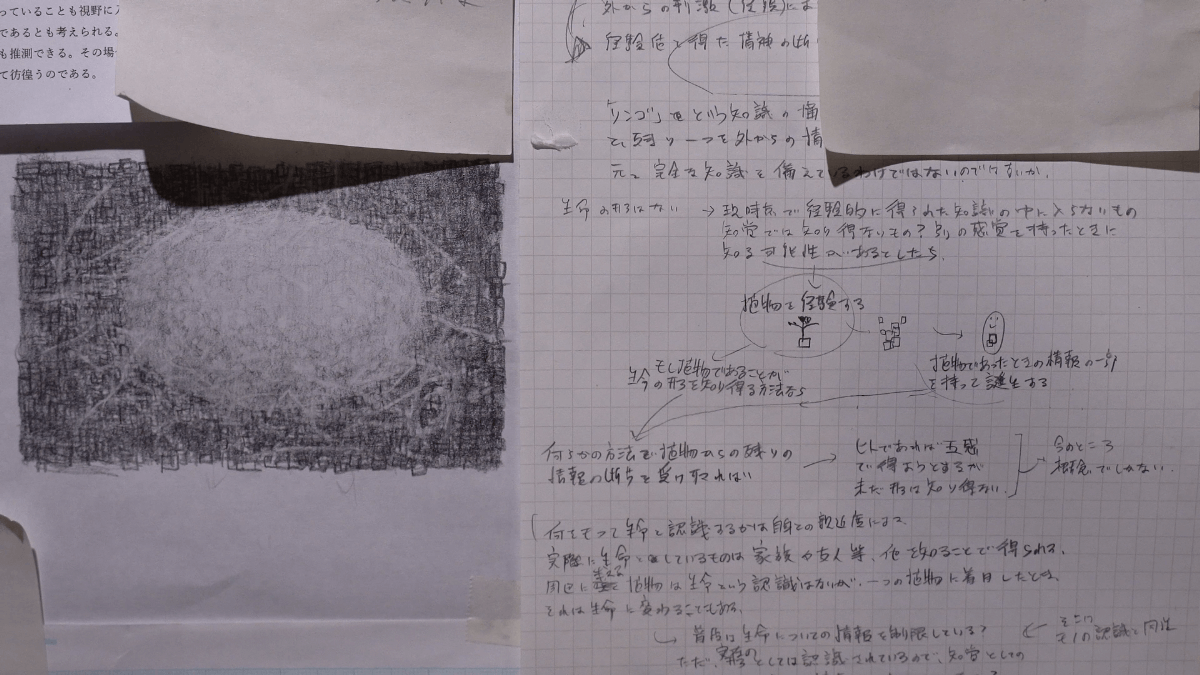 っていることも視野に入
であるとも考えられる。
も推測できる。その場
て彷徨うのである。
外からの刺激(経験)によ
経験値で得た情報の断
「リンゴ」という知識の
一つを外からの情
元々完全な知識を備えているわけではないのではないか。
生命の形はない → 現時点で経験的に得られた知識の中に入らないもの
知覚では知り得ないもの?別の感覚を持ったときに
知る可能性があるとしたら、
植物を経験する
もし植物であることが
生命の形を知り得る方法なら
植物であったときの情報の一部
を持って誕生する
何らかの方法で植物からの残りの
情報の断片を受け取れれば
ヒトであれば五感
で得ようとするが
未だ形は知り得ない。
今のところ
概念でしかない。
何をもって生命と認識するかは自身との親近度による
実際に生命としているものは家族や友人等、他を知ることで得られる。
周囲に生える植物は生命という認識はないが、一つの植物に着目したとき、
それは生命に変わることもある。
→ 普段は生命についての情報を制限している?
そこに
モノの認識と同定
ただ、実際のとしては認識されているので、知覚としての